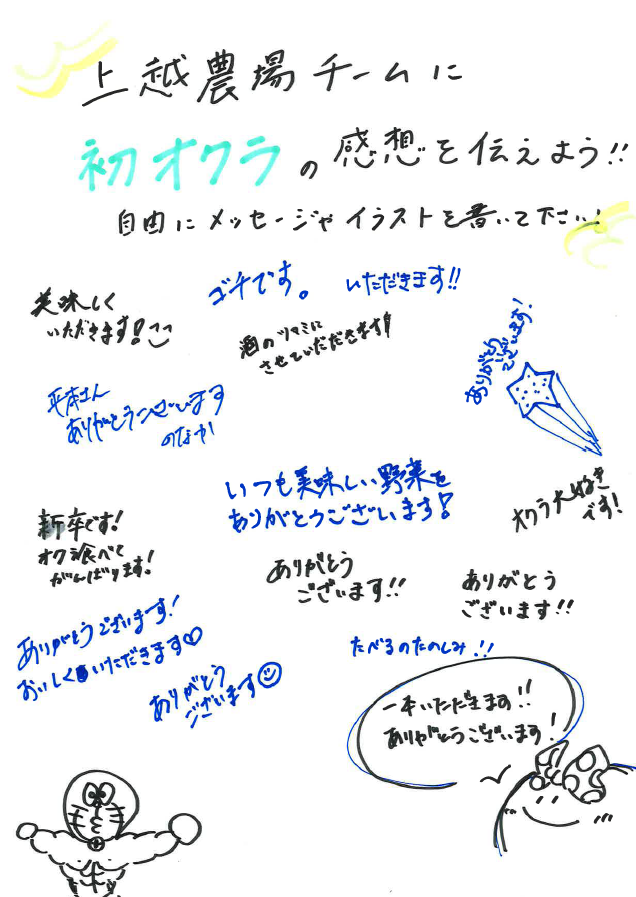 上越農場チームに
初オクラの感想を伝えよう!!
自由にメッセージやイラストを書いて下さい!
美味しく
いただきます!
ゴチです。
いただきます!!
酒のツマミに
させていただきます!
ありがとう
ございます!
平本さん
ありがとうございます
のなか
いつも美味しい野菜を
ありがとうございます!
オクラ大好き
です!
新卒です!
オクラ食べて
がんばります!
ありがとう
ございます!!
ありがとう
ございます!!
ありがとうございます!
おいしくいただきます♡
ありがとう
ございます
たべるのたのしみ!!
一本いただきます!!
ありがとうございます!